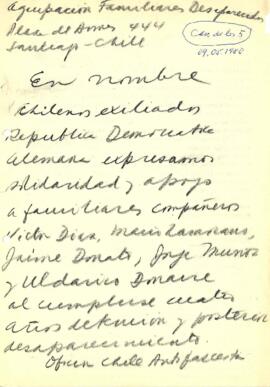 Agrupación Familiares Desaparecidos
Plaza de Armas 444
Santiago - Chile
En nombre
chilenos exiliados
Republica Democratica
Alemana expresamos
solidaridad y apoyo
a familiares compañeros
Victor Diaz, Mario Zamorano,
Jaime Donato, Jorge Muñoz
y Uldarico Donaire
al cumplirse cuatro
años detencion y posterior
desaparecimiento.
Oficina Chile Antifascista